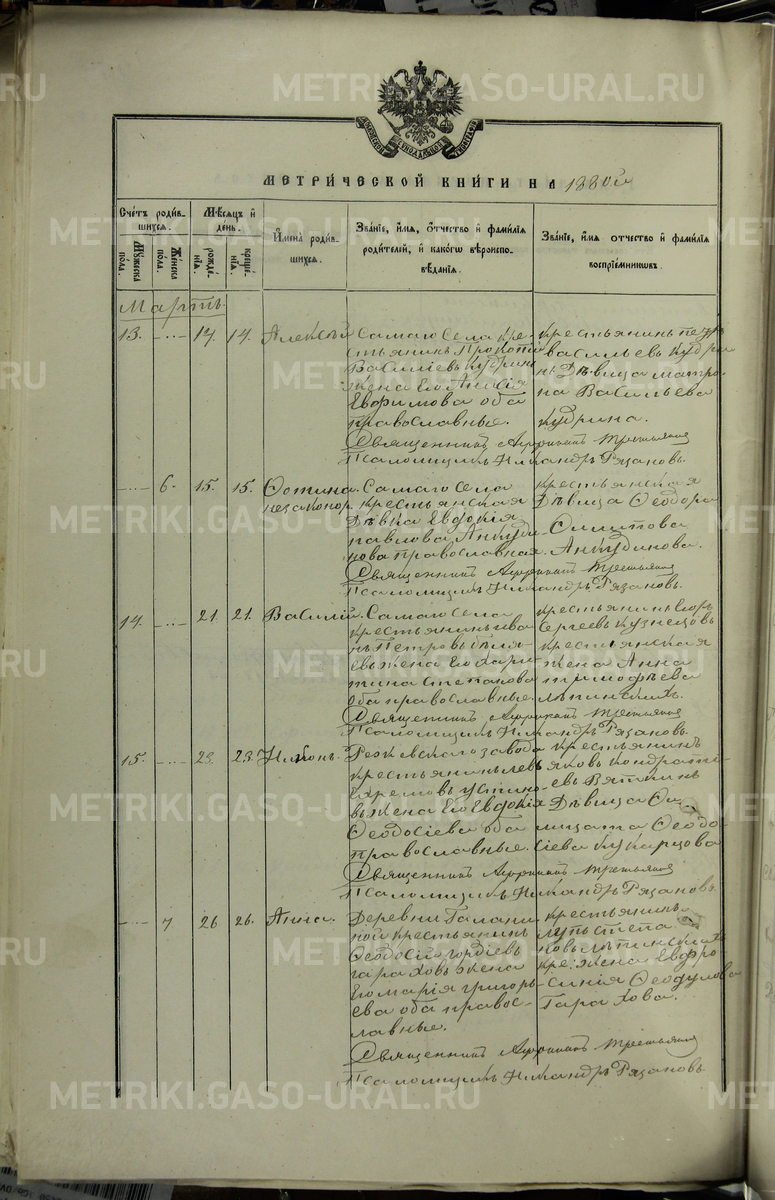 МЕТРИ́ЧЕСКОЙ КНИ́ГИ НА 1880й
Сче́тъ роди́в-
шихся.
Му́жеска
по́ла.
Же́нска
по́ла.
Мѣ́сяцъ и҆
де́нь.
рожде́-
нїя.
креще́-
нїя.
И҆мена̀ роди́в-
шихся.
Зва́нїе, и҆́мя, ѻ҆́тчество и҆ фами́лїя
роди́телей, и҆ како́гѡ вѣроиспо-
вѣ́данїя.
Зва́нїе, и҆́мя ѻ҆́тчество и҆ фами́лїя
воспрїе́мникѡвъ.
Мартъ.
13. 14. 14. Алексѣй
Самаго Села кре-
стьянинъ Прокопій
Василіевъ Кудринъ
жена его Анисія
Евфимова оба
православные.
крестьянинъ Петръ
Васильевъ Кудри
нъ Дѣвица Матро-
на Васильева
Кудрина.
Священникъ
Псаломщикъ Никандръ Рязановъ.
6. 15. 15. Фотина.
незаконор.
Самаго Села
крестьянская
Дѣвка Евдокія
Павлова Анкуди-
нова православная.
крестьянская
Дѣвица Феодора
Анкудинова.
Священникъ
Псаломщикъ Никандръ Рязановъ.
14. 21. 21. Василій.
Самаго Села
крестьянинъ Ива
нъ Петровъ Бѣля-
евъ жена его Хари-
тина Степанова
оба православные.
крестьянинъ Егоръ
Сергеевъ Кузнецовъ
крестьянская
жена Анна
Тимофѣева
Лѣпинскихъ.
Священникъ
Псаломщикъ Никандръ Рязановъ.
15. 23. 23. Никонъ.
Режевскаго завода
крестьянинъ Левъ
Ефремовъ Устино-
въ жена его Евдокія
Феодосіева оба
православные.
крестьянинъ
Яковъ Кондрать-
евъ Вяткинъ
Дѣвица
Феодо-
сіева Кукарцова
Священникъ
Псаломщикъ Никандръ Рязановъ
7 26 26. Анна.
Деревни Галани-
ной крестьянинъ
Феодосій Гордіевъ
Гараховъ жена
его Марія Григорь-
ева оба правос-
лавные.
крестьянинъ
Лѣпинскихъ
кре: жена Евфро
синія Феодулова
Гарахова.
Священникъ
Псаломщикъ Никандръ Рязановъ
METRIKI.GASO-URAL.RU